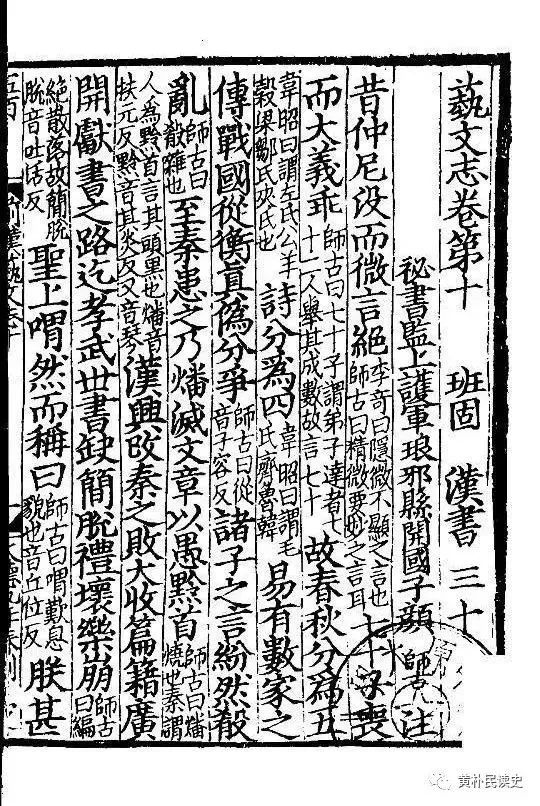 藝文志卷第十 班固 漢書三十
秘書監上護軍琅邪縣開國子顏師古注
昔仲尼没而微言絶李奇曰隱微不顯之言也師古曰精微要妙之言耳七十子喪
而大義乖師古曰七十子謂弟子達者七十二人舉其成數故言七十故春秋分爲五
韋昭曰謂左氏公羊穀梁鄒氏夾氏也詩分爲四韋昭曰謂毛氏齊魯韓易有數家之
傳戰國從衡真僞分爭師古曰從音子容反諸子之言紛然殽
亂師古曰殽雜也至秦患之乃燔滅文章以愚黔首師古曰燔燒也秦謂
人爲黔首言其頭黑也燔音扶元反黔音其炎反又音琴漢興改秦之敗大收篇籍廣
開獻書之路迄孝武世書缺簡脫禮壞樂崩師古曰編
絶散落故簡脫脫音吐活反聖上喟然而稱曰師古曰喟歎息貌也音丘位反朕甚
黄朴民读史